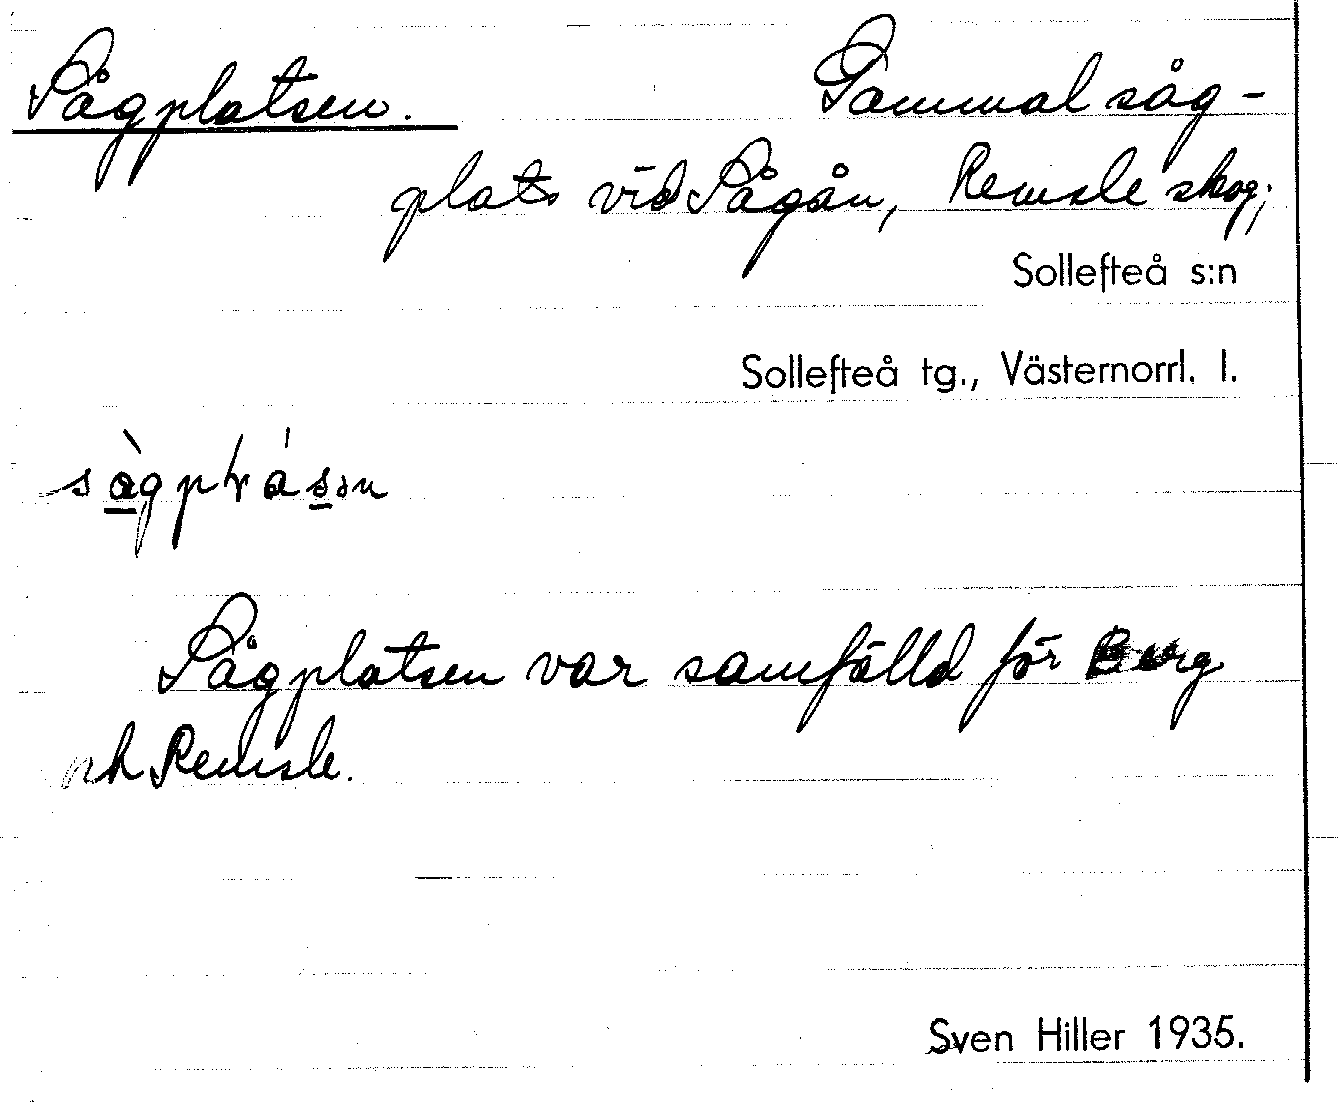 Sågplatsen. Gammal såg-
plats vid Sågån, Remsle skog;
Sollefteå s:n
Sollefteå tg., Västernorrl. l.
Sågplatsen var samfälld för Berg
och Remsle.
Sven Hiller 1935.